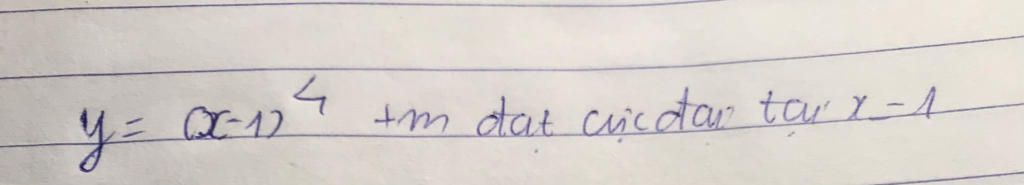 y = (x-1)⁴ +m đạt cực đại tại x = 1